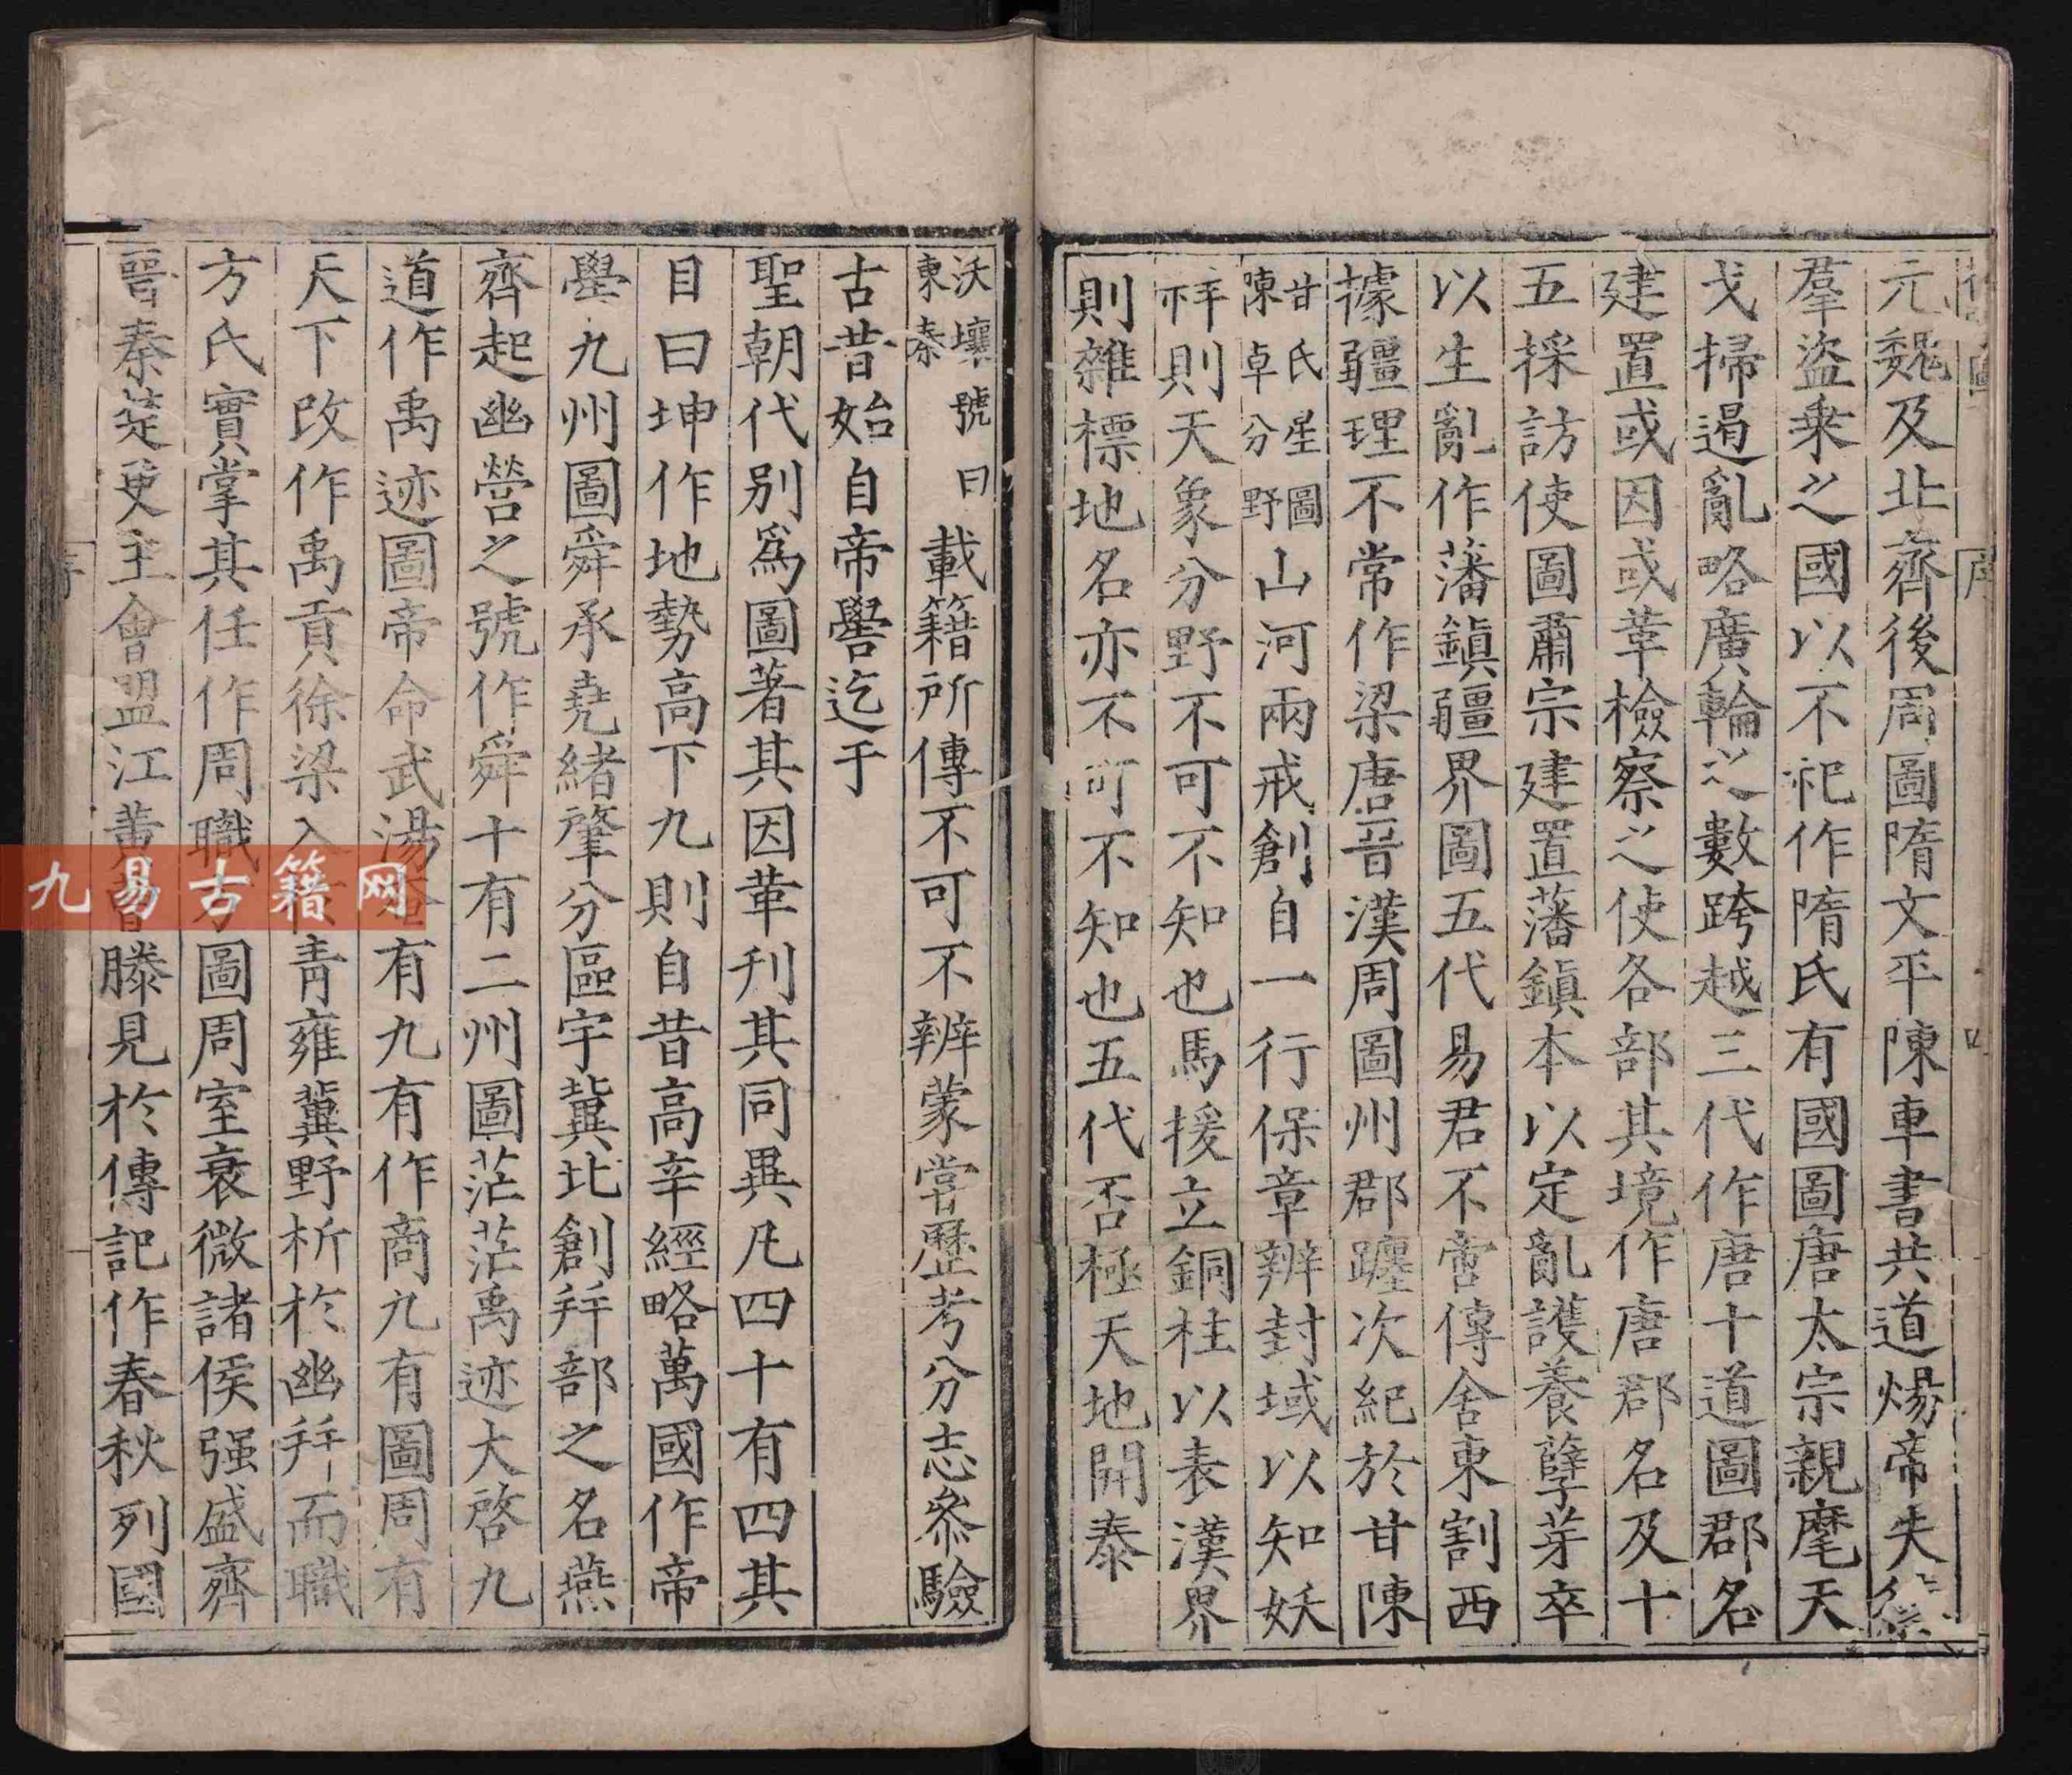 元魏及北齊後周圖隋文平陳車書共道煬帝失德
羣盜乗之國以不祀作隋氏有國圖唐太宗親麾天
戈掃遏亂略廣輪之數跨越三代作唐十道圖郡名
建置或因或革檢察之使各部其境作唐郡名及十
五採訪使圖肅宗建置藩鎮本以定亂護養孽芽卒
以生亂作藩鎮疆界圖五代易君不啻傳舍東割西
據疆理不常作梁唐晉漢周圖州郡躔次紀於甘陳
甘氏星圖
陳卓分野
山河兩戒創自一行保章辨封域以知妖
祥則天象分野不可不知也馬援立銅柱以表漢界
則雜標地名亦不可不知也五代否極天地開泰
序
沃壤號曰
東秦
載籍所傳不可不辨蒙嘗歷考分志叅驗
古昔始自帝嚳迄于
聖朝代別爲圖著其因革刋其同異凡四十有四其
目曰坤作地勢高下九則自昔高辛經略萬國作帝
嚳九州圖舜承堯緒肇分區宇冀北創幷部之名燕
齊起幽營之號作舜十有二州圖茫茫禹迹大啓九
道作禹迹圖帝命武湯奄有九有作商九有圖周有
天下改作禹貢徐梁入青雍冀野析於幽幷而職
方氏實掌其任作周職方圖周室衰微諸侯强盛齊
晉秦楚更主會盟江黄曹滕見於傳記作春秋列國
九易古籍网